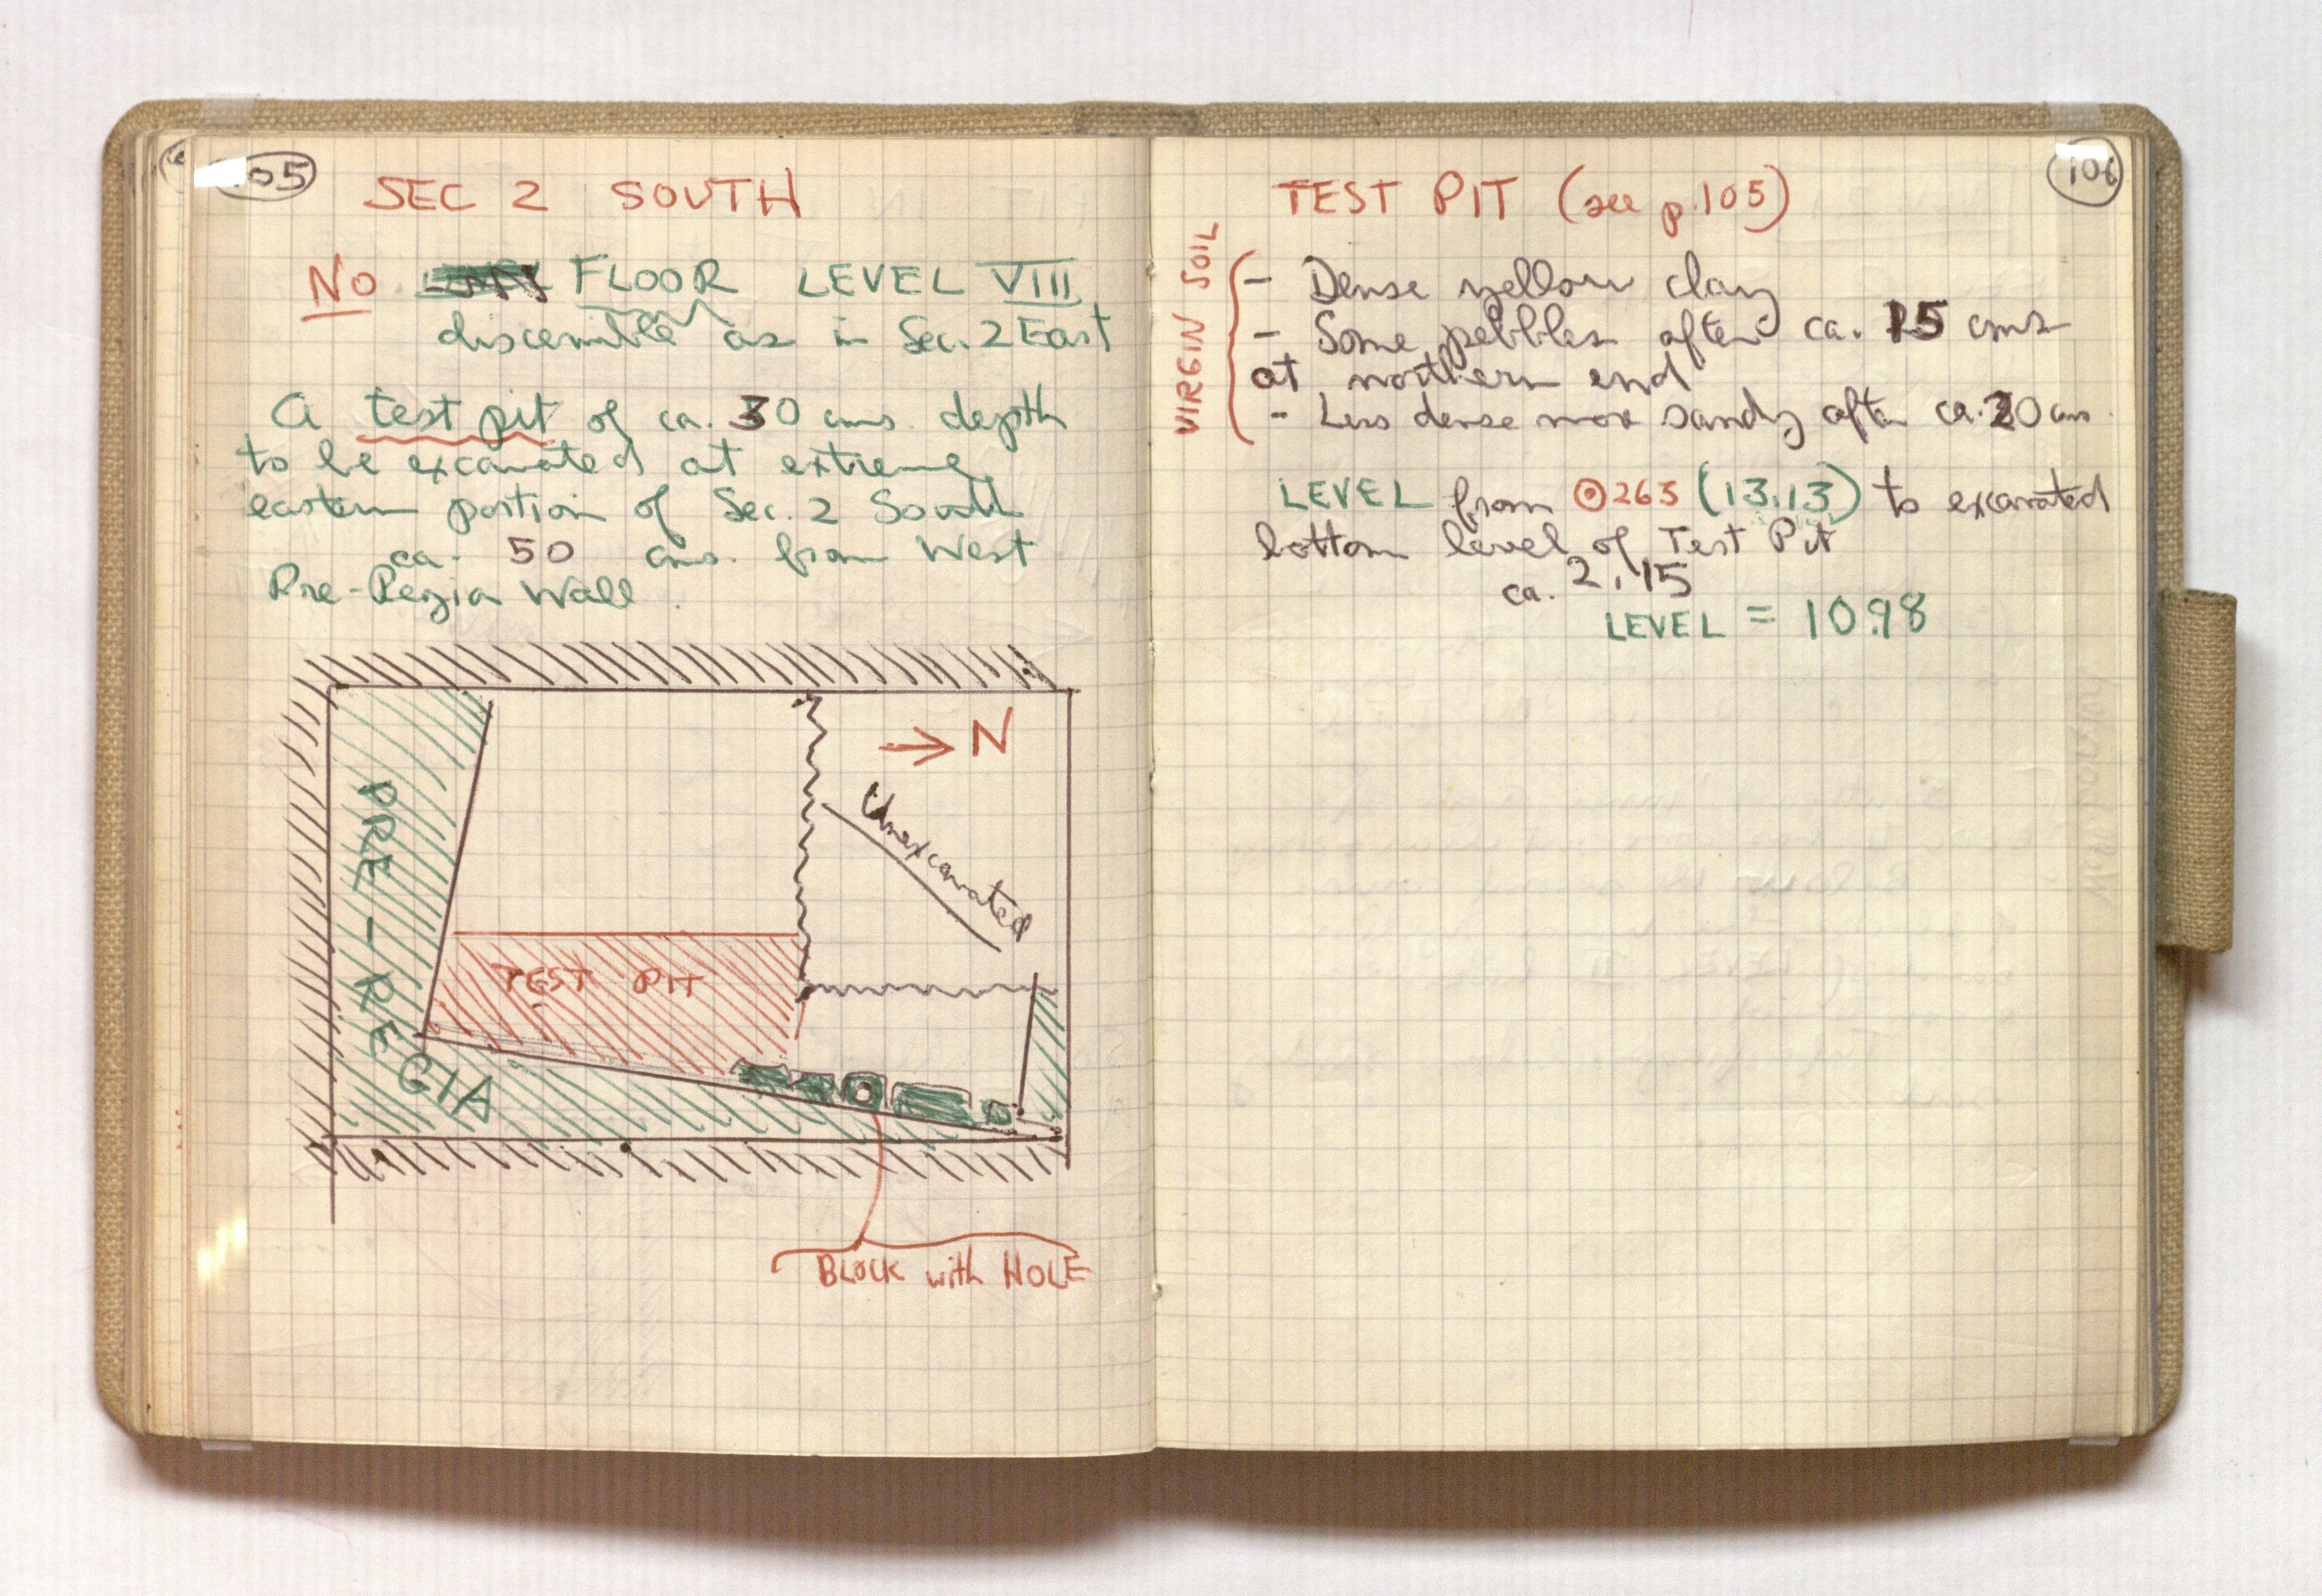 105
SEC 2 SOUTH
NO FLOOR LEVEL VIII
discernible as in Sec. 2 East
A test pit of ca. 30 cms. depth
to be excavated at extreme
eastern portion of Sec. 2 South
ca. 50 cms. from West
Pre-Regia Wall.
N
Unexcavated
PRE-REGIA
TEST PIT
BLOCK with HOLE
106
TEST PIT (see p. 105)
VIRGIN SOIL
- Dense yellow clay
- Some pebbles after ca. 15 cms
at northern end
- Less dense more sandy after ca. 20 cms
LEVEL from ⊙263 (13.13) to excavated
bottom level of Test Pit
ca. 2.15
LEVEL = 10.98